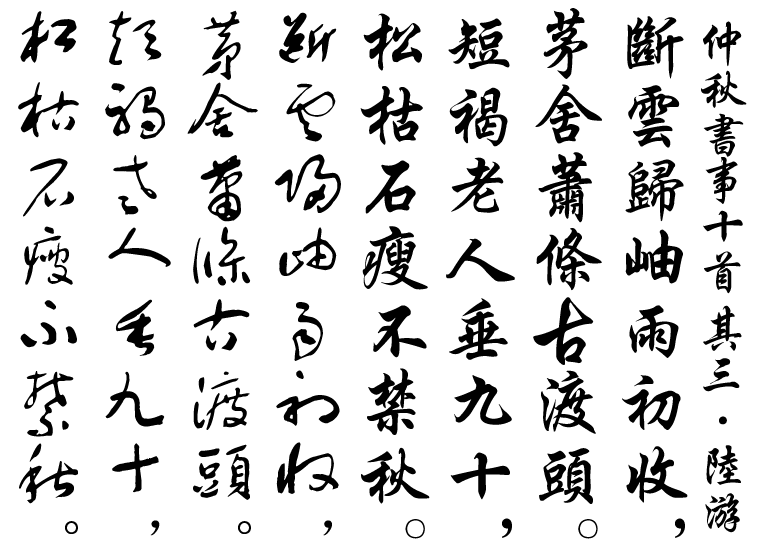 仲秋書事十首其三·陸游
斷雲歸岫雨初收，
茅舍蕭條古渡頭。
短褐老人垂九十，
松枯石瘦不禁秋。
斷雲歸岫雨初收，
茅舍蕭條古渡頭。
短褐老人垂九十，
松枯石瘦不禁秋。